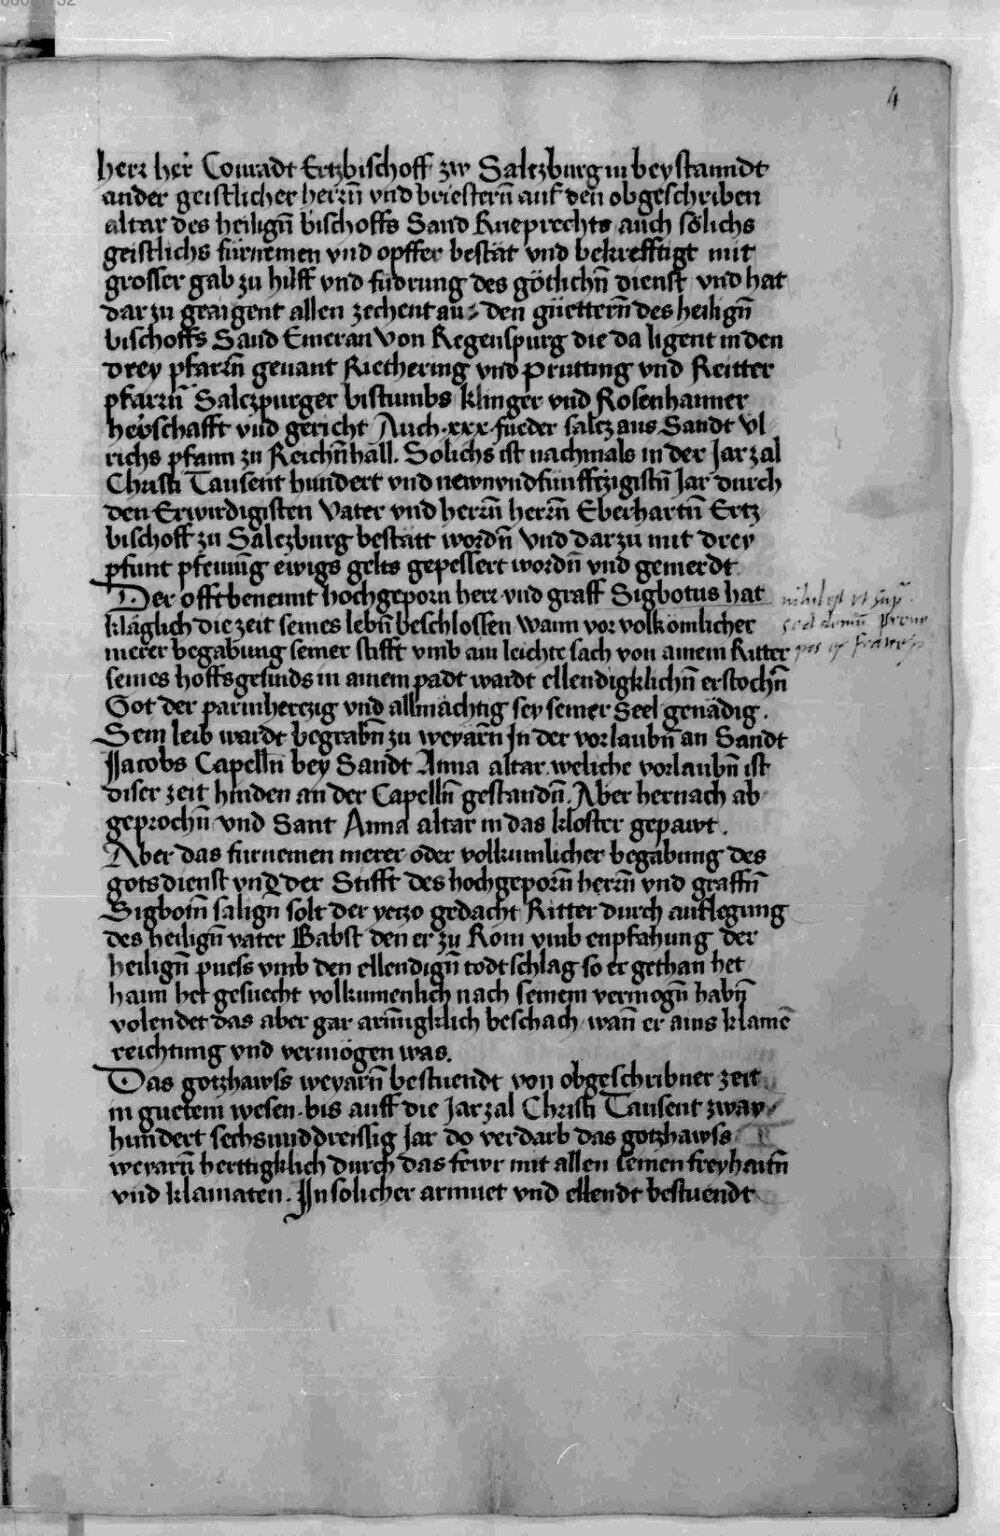 4
herr her Conradt Ertzbischoff zw Saltzburg in beystanndt
ander geistlicher herrn̄ vnd briestern̄ auf den obgeschriben
altar des heilign̄ bischoffs Sand Rueprechts auch sölichs
geistlichs fürnemen vnd opffer bestät vnd bekrefftigt mit
grosser gab zu hilff vnd fudrung des götlichn̄ dienst vnd hat
dar zu geaigent allen zechent aus den güettern̄ des heilign̄
bischoffs Sand Emeran Von Regenspurg die da ligent in den
drey pfarrn̄ genant Riethering vnd Prutting vnd Reitter
pfarrn̄ Salczpurger bistumbs klinger vnd Rosenhaimer
herschafft vnd gericht Auch ·xxx· fueder salcz aus Sandt Vl
richs pfann zu Reichn̄hall. Solichs ist nachmals in der Jar zal
Christi Tausent hundert vnd newnvndfunfftzigistn̄ Jar durch
den Erwirdigisten Vater vnd herrn̄ herrn̄ Eberhartn̄ Ertz
bischoff zu Salczburg bestätt wordn̄ Vnd dar zu mit drey
pfunt pfenning ewigs gelts gepessert wordn̄ vnd gemerdt
Der offtbenennt hochgeporn herr vnd graff Sigbotus hat
kläglich die zeit seines lebn̄ beschlossen wann vor volkömlicher
merer begabung seiner stifft vmb ain leichte sach von ainem Ritter
seines hoffsgesinds in ainem padt wardt ellendigklichn̄ erstochn̄
Got der parmhertzig vnd allmächtig sey seiner Seel genädig.
Sein leib wardt begrabn̄ zu weyarn̄ In der vorlaubn̄ an Sandt
Jacobs Capelln̄ bey Sandt Anna altar weliche vorlaubn̄ ist
diser zeit hinden an der Capelln̄ gestandn̄. Aber hernach ab
geprochn̄ vnd Sant Anna altar in das kloster gepawt.
Aber das furnemen merer oder volkumlicher begabung des
gots dienst vnd der Stifft des hochgeporn̄ herrn̄ vnd graffn̄
Sigbotn̄ sälign̄ solt der yetzo gedacht Ritter durch auflegung
des heilign̄ vater Babst den er zu Rom vmb enpfahung der
heilign̄ puess vmb den ellendign̄ todtschlag so er gethan het
haim het gesuecht volkumenlich nach seinem vermogn̄ habn̄
volendet das aber gar armigklich beschach wan̄ er ains klainē
reichtung vnd vermögen was.
Das gotzhawss weyarn̄ bestuendt von obgeschribner zeit
in guetem wesen bis auff die Jar zal Christi Tausent zway
hundert sechsunddreissig Jar do verdarb das gotzhawss
weyarn̄ herttigklich durch das fewr mit allen seinen freyhaitn̄
vnd klainaten. In solicher armuet vnd ellendt bestuendt